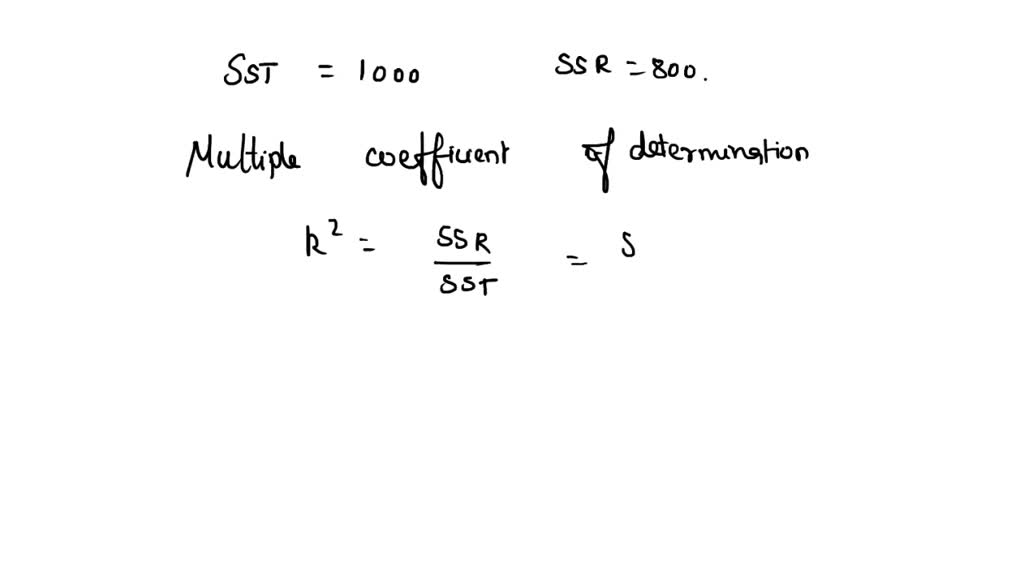 SST = 1000 SSR = 800.
Multiple coefficient of determination
R² = SSR / SST = S